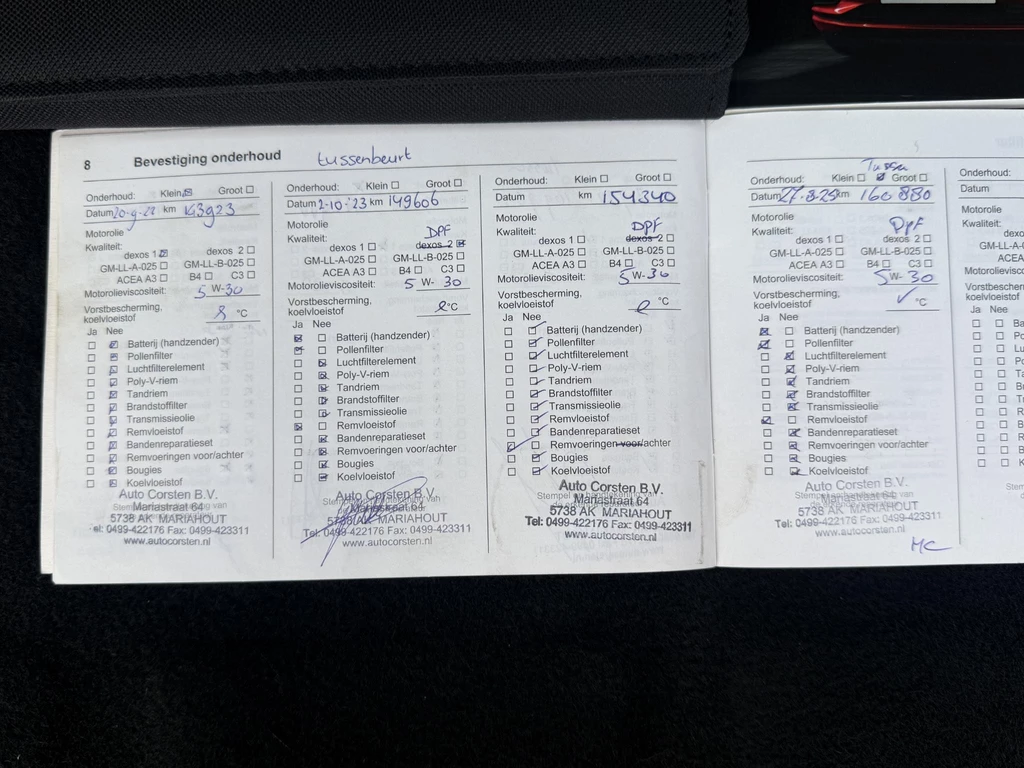 8 Bevestiging onderhoud tussenbeurt
Onderhoud: Klein ☒ Groot ☐
Datum km 143923
Motorolie
Kwaliteit:
dexos 1 ☒ dexos 2 ☐
GM-LL-A-025 ☐ GM-LL-B-025 ☐
ACEA A3 ☐ B4 ☐ C3 ☐
Motorolieviscositeit: 5 W-30
Vorstbescherming,
koelvloeistof °C
Ja Nee
☐ ☒ Batterij (handzender)
☐ ☒ Pollenfilter
☐ ☒ Luchtfilterelement
☐ ☒ Poly-V-riem
☐ ☒ Tandriem
☐ ☒ Brandstoffilter
☐ ☒ Transmissieolie
☐ ☒ Remvloeistof
☐ ☒ Bandenreparatieset
☐ ☒ Remvoeringen voor/achter
☐ ☒ Bougies
☐ ☒ Koelvloeistof
Auto Corsten B.V.
Mariastraat 64
5738 AK MARIAHOUT
Tel: 0499-422176 Fax: 0499-423311
www.autocorsten.nl
Onderhoud: Klein ☐ Groot ☐
Datum 2-10-'23 km 149606
Motorolie
Kwaliteit: DPF
dexos 1 ☐ dexos 2 ☒
GM-LL-A-025 ☐ GM-LL-B-025 ☐
ACEA A3 ☐ B4 ☐ C3 ☐
Motorolieviscositeit: 5 W- 30
Vorstbescherming,
koelvloeistof °C
Ja Nee
☒ ☐ Batterij (handzender)
☒ ☐ Pollenfilter
☐ ☒ Luchtfilterelement
☐ ☒ Poly-V-riem
☐ ☒ Tandriem
☐ ☒ Brandstoffilter
☐ ☒ Transmissieolie
☒ ☐ Remvloeistof
☐ ☒ Bandenreparatieset
☐ ☒ Remvoeringen voor/achter
☐ ☒ Bougies
☐ ☒ Koelvloeistof
Auto Corsten B.V.
Mariastraat 64
5738 AK MARIAHOUT
Tel: 0499-422176 Fax: 0499-423311
www.autocorsten.nl
Onderhoud: Klein ☐ Groot ☐
Datum km 154340
Motorolie
Kwaliteit: DPF
dexos 1 ☐ dexos 2 ☐
GM-LL-A-025 ☐ GM-LL-B-025 ☐
ACEA A3 ☐ B4 ☐ C3 ☐
Motorolieviscositeit: 5 W-30
Vorstbescherming,
koelvloeistof °C
Ja Nee
☐ ☑ Batterij (handzender)
☐ ☑ Pollenfilter
☐ ☑ Luchtfilterelement
☐ ☑ Poly-V-riem
☐ ☑ Tandriem
☐ ☑ Brandstoffilter
☐ ☑ Transmissieolie
☐ ☑ Remvloeistof
☐ ☑ Bandenreparatieset
☑ ☐ Remvoeringen voor/achter
☐ ☑ Bougies
☐ ☑ Koelvloeistof
Auto Corsten B.V.
Mariastraat 64
5738 AK MARIAHOUT
Tel: 0499-422176 Fax: 0499-423311
www.autocorsten.nl
Onderhoud: Klein ☐ ☒ Groot ☐
Datum km 160 880
Motorolie
Kwaliteit: DPF
dexos 1 ☐ dexos 2 ☐
GM-LL-A-025 ☐ GM-LL-B-025 ☐
ACEA A3 ☐ B4 ☐ C3 ☐
Motorolieviscositeit: 5 W- 30
Vorstbescherming,
koelvloeistof ✓ °C
Ja Nee
☒ ☐ Batterij (handzender)
☒ ☐ Pollenfilter
☐ ☒ Luchtfilterelement
☐ ☒ Poly-V-riem
☐ ☒ Tandriem
☐ ☒ Brandstoffilter
☐ ☒ Transmissieolie
☒ ☐ Remvloeistof
☐ ☒ Bandenreparatieset
☐ ☒ Remvoeringen voor/achter
☐ ☒ Bougies
☐ ☒ Koelvloeistof
Auto Corsten B.V.
Mariastraat 64
5738 AK MARIAHOUT
Tel: 0499-422176 Fax: 0499-423311
www.autocorsten.nl
MC
Onderhoud:
Datum
Motorolie
Kwaliteit:
Ja Nee